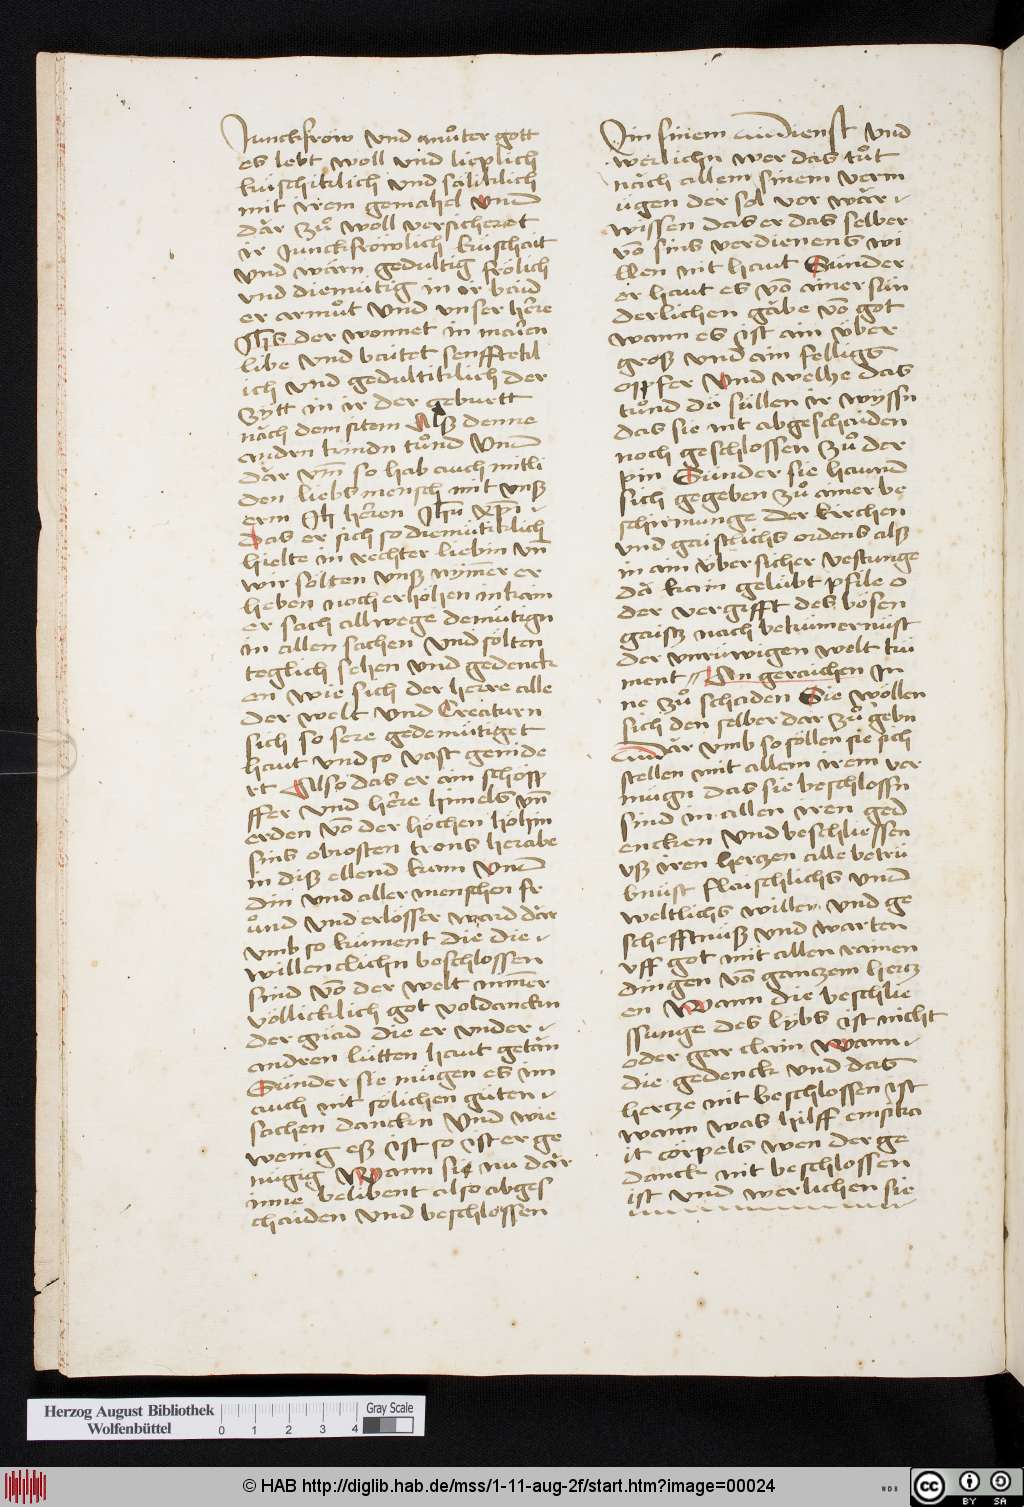 Junckfrow vnd muͦter gott
es lebt woll vnd lieplich
kúschiklich vnd säliklich
mit irem gemahel vnd
där zuͦ woll versicheret
ir Junckfröwlich kuschait
vnd wärn gedultig frölich
vnd diemuͤtig in ir baid
er armuͦt vnd vnser herre
Jhs der wonnet in mairen
libe vnd baitet senfftekl
ich vnd gedultiklich der
zytt in ir der geburtt
näch dem sitem Alß denne
andrn kindn tuͦnd vnd
där vm̄ so hab auch mitli
den liebs mensch mit vnß
erm Jh heren Jhū xp̄i
das er sich so diemuͤtiklich
hielte in rechter liebin vn̄
wir sölten vnß nȳmer er
heben noch erhöhen in kain
er sach allwege demuͤtign
in allen sachen vnd sölten
teglich sehen vnd gedenck
en wie sich der herre alle
der welt vnd Creaturn
sich so sere gedemuͤtiget
haut vnd so vast genide
rt Also das er ain schöpp
ffer vnd herre himels vn̄
erden vō der höchen höhin
sins obrosten trons herabe
in diß ellend kam vnd
din vnd aller menschen fr
uͦnd vnd erlösser ward där
vmb so kúment die die
willenclichn beschlossen
sind vō der welt nim̄er
völlicklich got voldanckn
der gnäd die er vnder
andren lútten haut getän
Súnder sie múgen es im
auch nit sölichen guͤten
sachen danckn vnd wie
wenig eß ist so ist er ge
núgig Wann sie nu där
inne belibent also abges
chaiden vnd beschlossen
Jn sinem dienst vnd
werlichn wer das tuͦt
näch allem sinem verm
úgen der sol vor wär
wissen das er das selber
vō sins verdienens wi
llen nit haut Súnder
er haut es vō ainer sún
derlichen gäbe vō got
wann es ist ain über
groß vnd ain felligs
opfer vnd welhe das
tuͦnd dä súllen ir wyssn
das sie nit abgeschaiden
noch geschlossen zuͦ der
pin Súnder sie haund
sich gegeben zuͦ ainer be
schirmunge der kirchen
vnd gaistlichs ordens alß
in ain über sicher vestunge
dä kain gelúbt pfile
der vergifft des bösen
gaistz nach betrúmernúst
der vnrúwigen welt kú
ment // An geraichen in
ne zuͦ schaden Sie wöllen
sich den selber dar zuͦ gebn
Där vmb so söllen sie sich
stellen mit allem irem ver
múgn das sie beschlossn
sind in allen iren ged
encken vnd beschliessen
vß iren hertzen alle betrú
bnúst flaischlichs vnd
weltlichs willen vnd ge
schefftnúß vnd warten
vff got mit allen rainen
dingen vō gantzem hertz
en Wann die beschlie
ssunge des lybs ist nicht
oder gar clain Wann
die gedenck vnd das
hertze nit beschlossen ist
wann was hilff
it cörpels wen der ge
danck nit beschlossen
ist vnd werlichen sie
Herzog August Bibliothek
Wolfenbüttel
0 1 2 3 4
Gray Scale
© HAB http://diglib.hab.de/mss/1-11-aug-2f/start.htm?image=00024
WDB
cc BY SA